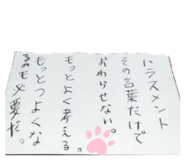 ハラスメント
その言葉だけで
おわらせない。
もっとよく考える。
もっとつよくな
るのも必要だ。